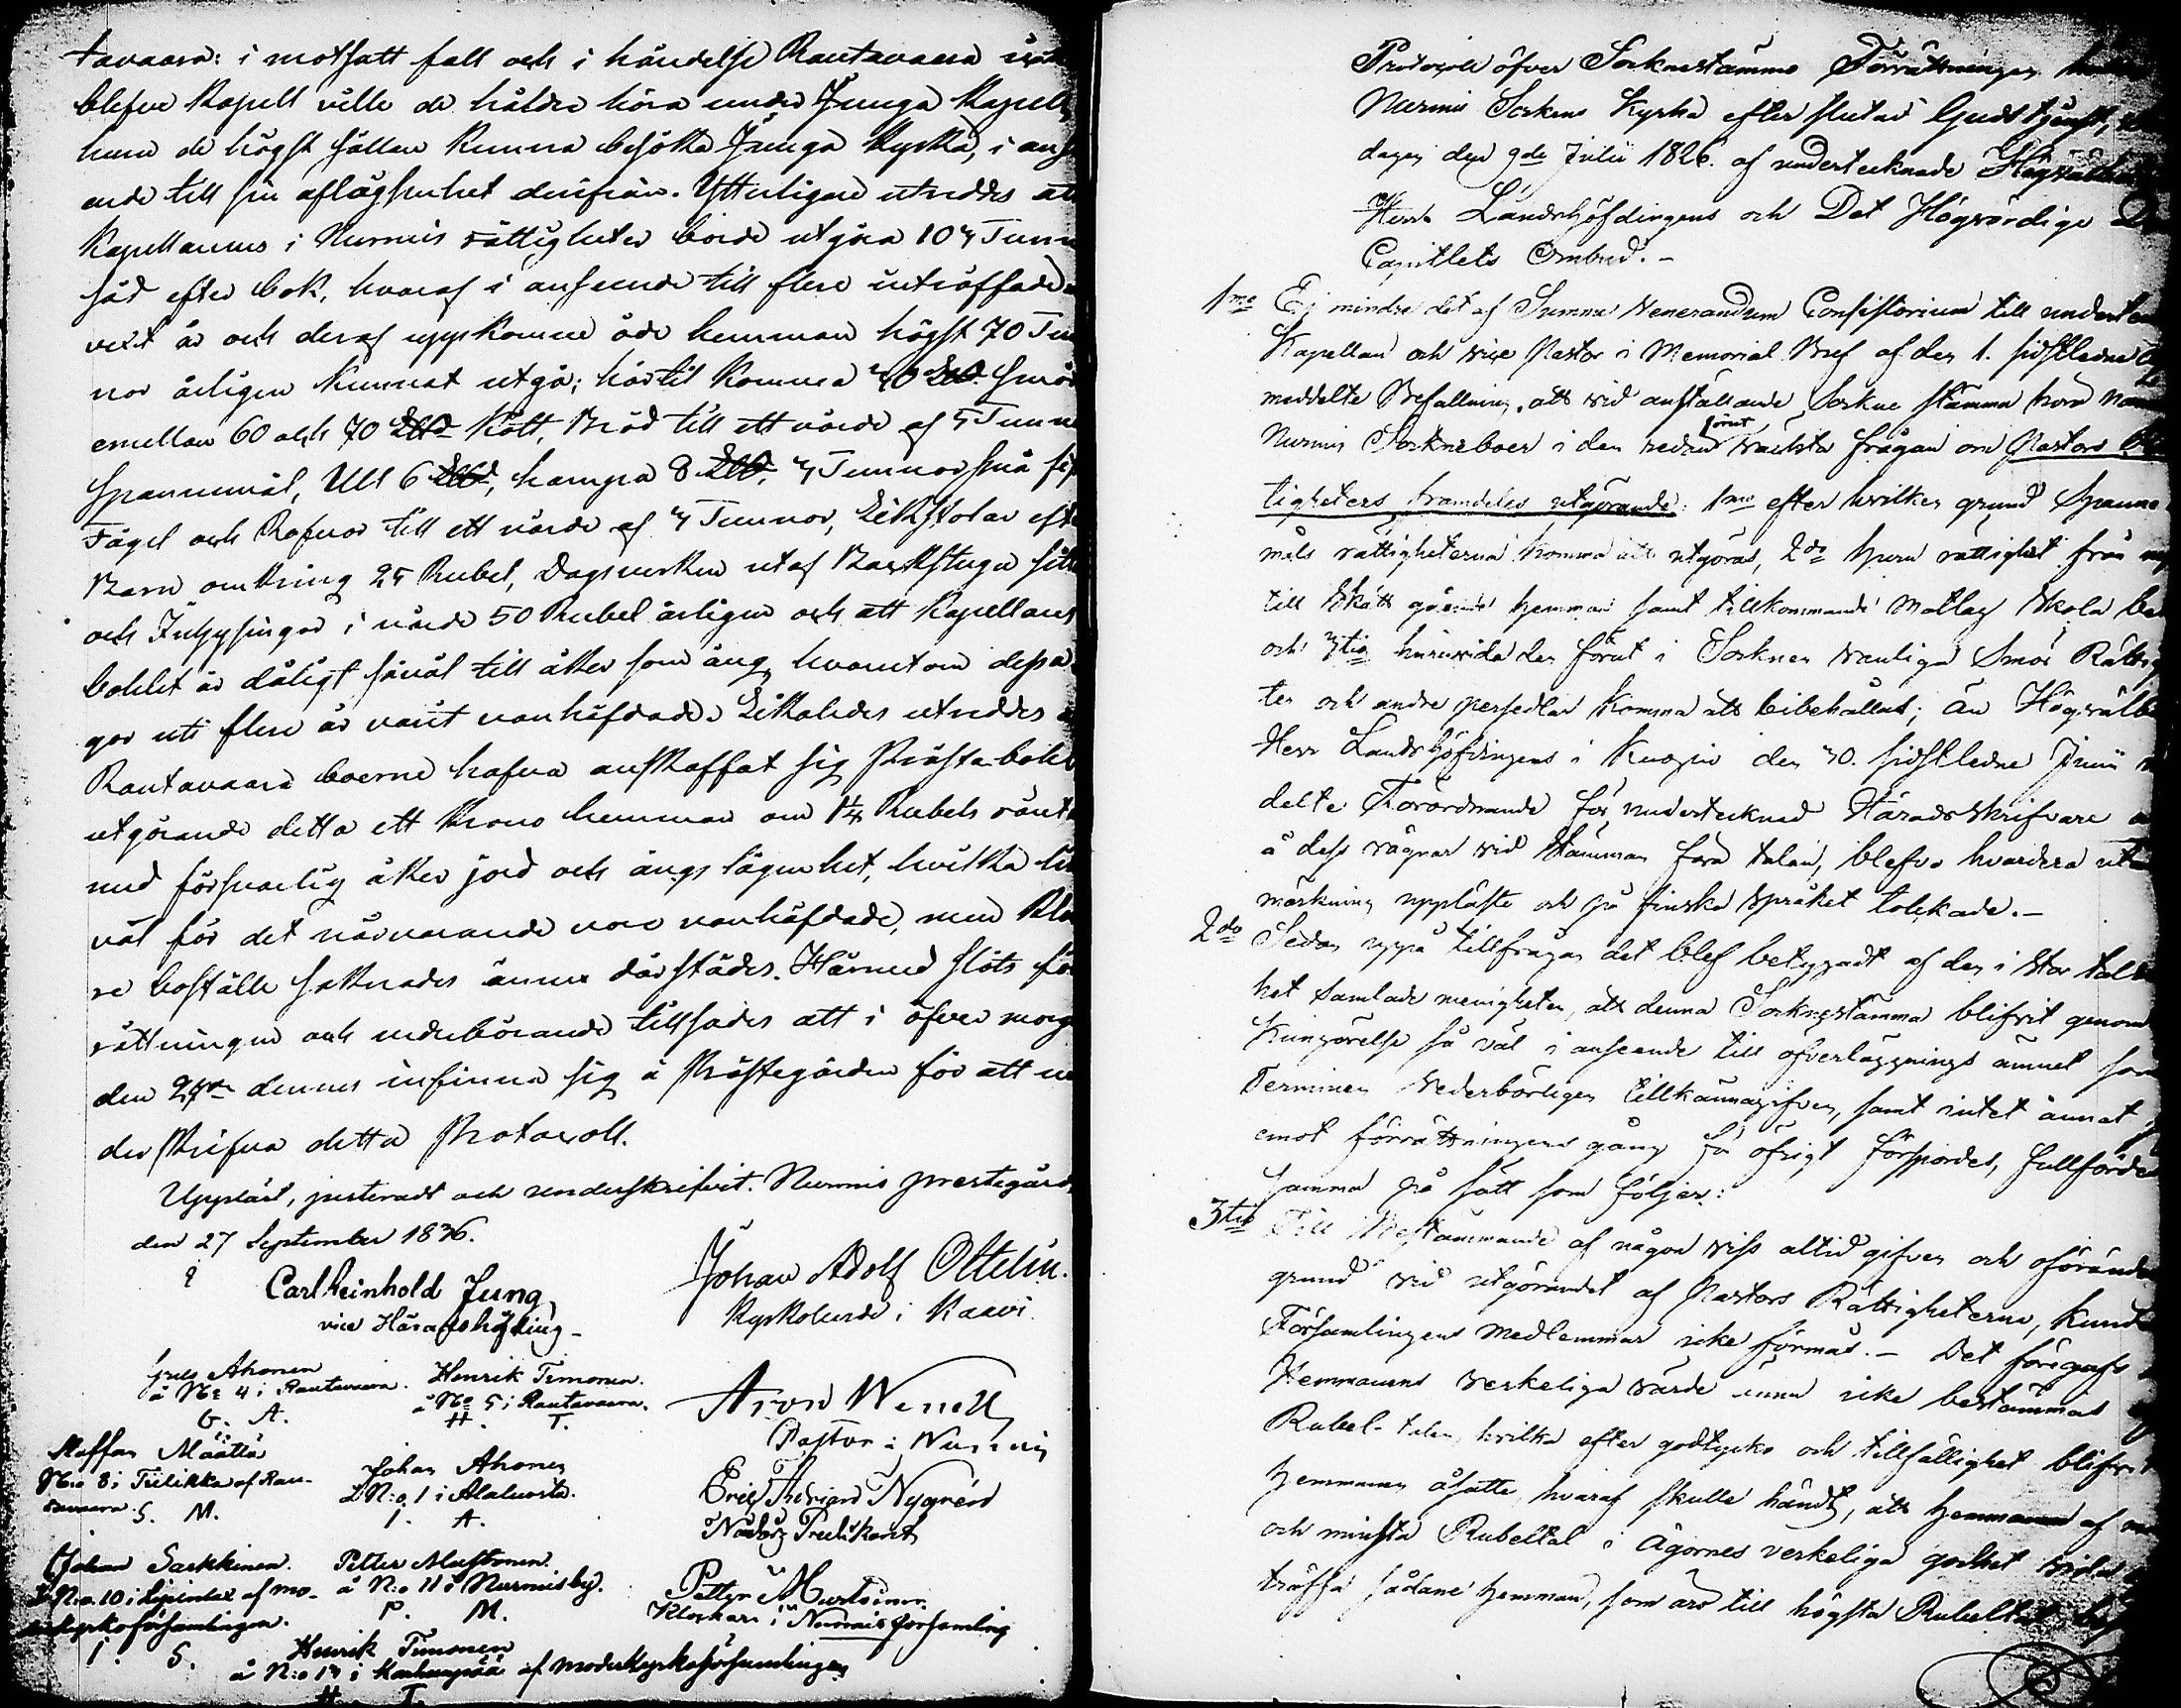 tavaara: i motsatt fall och i händelse Rautavaara icke
blefve Kapell ville de håldre höra under Junga Kapell,
hum de högst sällan kunna besöka Junga Kyrka, i anse
ende till sin aflägsenhet derifrån. Ytterligare utreddes att
Kapellanens i Nurmis rättigheter borde utgöra 104 Tunn
säd efter bok, hvaraf i anseende till flere inträffade
vext år och deraf uppkomne öde hemman högst 70 Tun
nor årligen kunnat utgå; härtil komma 40 Smör
emellan 60 och 70 Kött, Bröd till ett värde af 5 Tunn
Spannemål, Ull 6, hampa 8, 4 Tunnor små fisk
Fågel och Rofvor till ett värde af 4 Tunnor, Likstolar efter
Barn omkring 25 Rubel, Dagsverken utaf Backstugu sitt
och Inhysingar i värde 50 Rubel årligen och att Kapellans
bohlet är dåligt såväl till åker som äng, hvarutom dessa
gor uti flere år varit vanhäfdade. Likaledes utreddes
Rautavaara boerne hafva anskaffat sig Prästa-bohl
utgörande detta ett Krono hemman om 1/4 Rubels ränt
med förswarlig åker jord och ängs lägenhet, hvilka lik
väl för det närvarande voro vanhäfdade, men Klo
re boställe saknades ännu därstädes. Härmed slöts för
rättningen och vederbörande tillsades att i öfver morg
den 27de dennes infinna sig å Prästegården för att un
derskrifva detta Protocoll.
Uppläst, justeradt och underskrifvit. Nurmis prestegård
den 27 September 1836.
Carl Reinhold Jung, Johan Adolf Oltelin.
vice Häradshöfding_ Kyrkoherde i Kaavi.
Ahonen Henrik Timonen.
å No 4 i Rautavaara. å No 5 i Rautavaara. Aron Wenell
G. A. H. T. Pastor i Nurmis
Staffan Määttä Johan Ahonen
No 8 i Tiilikka af Rau- N:o 1 i Alaluosta. Eric Adrian Nygrén
tavaara. S. M. J. A. Predikant
Johan Sarkkinen. Petter Mustonen.
N:o 10 i af mo- å N:o 11 i Nurmisby. Petter Murtoinen
derkyrkoförsamlingen. P. M. Klockare i Nurmis församling
J. S. Henrik Timonen
å N:o 14 i af moderkyrkoförsamlingen
H. T.
Protocoll öfver Sockenstämmo Förrättningen
Nurmis Sockens Kyrka efter slutad Gudstjenst,
dagen den 9de Julii 1826. af undertecknade Högvälborne
Herr Landshöfdingens och Det Högvördige Dom
Capitlets Ombud.-
1mo Ej mindre det af Summe Venerandum Consistorium till undertecknad
Kapellan och vice Pastor i Memorial Bref af den 1. sistledne
meddelte Befallning, att vid anställande Sockne stämma höra
Nurmis Sockneboer i den redan förut väckta frågan om Pastors Rät
tigheters framdeles utgörande: 1mo efter hvilken grund Spanne
måls rättigheterna komma att utgöras, 2do hvem rättighet från
till Skatt görande hemman samt tillkommande Matlag Skola be
och 3tio huruvida den förut i Socknen vanliga Smör Rättig
ter och andre persedlar komma att bibehållas; än Högvälborne
Herr Landshöfdingens i Kuopio den 30. sistledne Junii
delte Förordnande för undertecknad Häradsskrifvare
å dess vägnar vid Stämman föra talan, blefvo hvardera utan
märkning uppläste och på finska språket tolckade.-
2do Sedan uppå tillfrågan det blef betygadt af den i stor talrik
het samlade menigheten, att denna Socknestämma blifvit genom
Kungörelse så väl i anseende till öfverläggnings ämnet som
Terminen vederbörligen tillkännagifven, samt intet annat
emot förrättningens gång för öfrigt försports, fullfördes
samma på sätt som följer:
3tio Till Bestämmande af någon viss altid gifven och oförändr
grund vid utgörandet af Pastors Rättigheterna, kund
Församlingens Medlemmar icke förmås.- Det föregafs
Hemmanens verkeliga värde ännu icke bestämmas
Rubel-talen, hvilka efter godtycke och tillfällighet blifvit
Hemmanen åsatte, hvaraf skulle händt, att hemmanen af
och minsta Rubeltal i ägornes verkeliga godhet vida
träffa sådane hemman, som äro till högsta Rubeltal